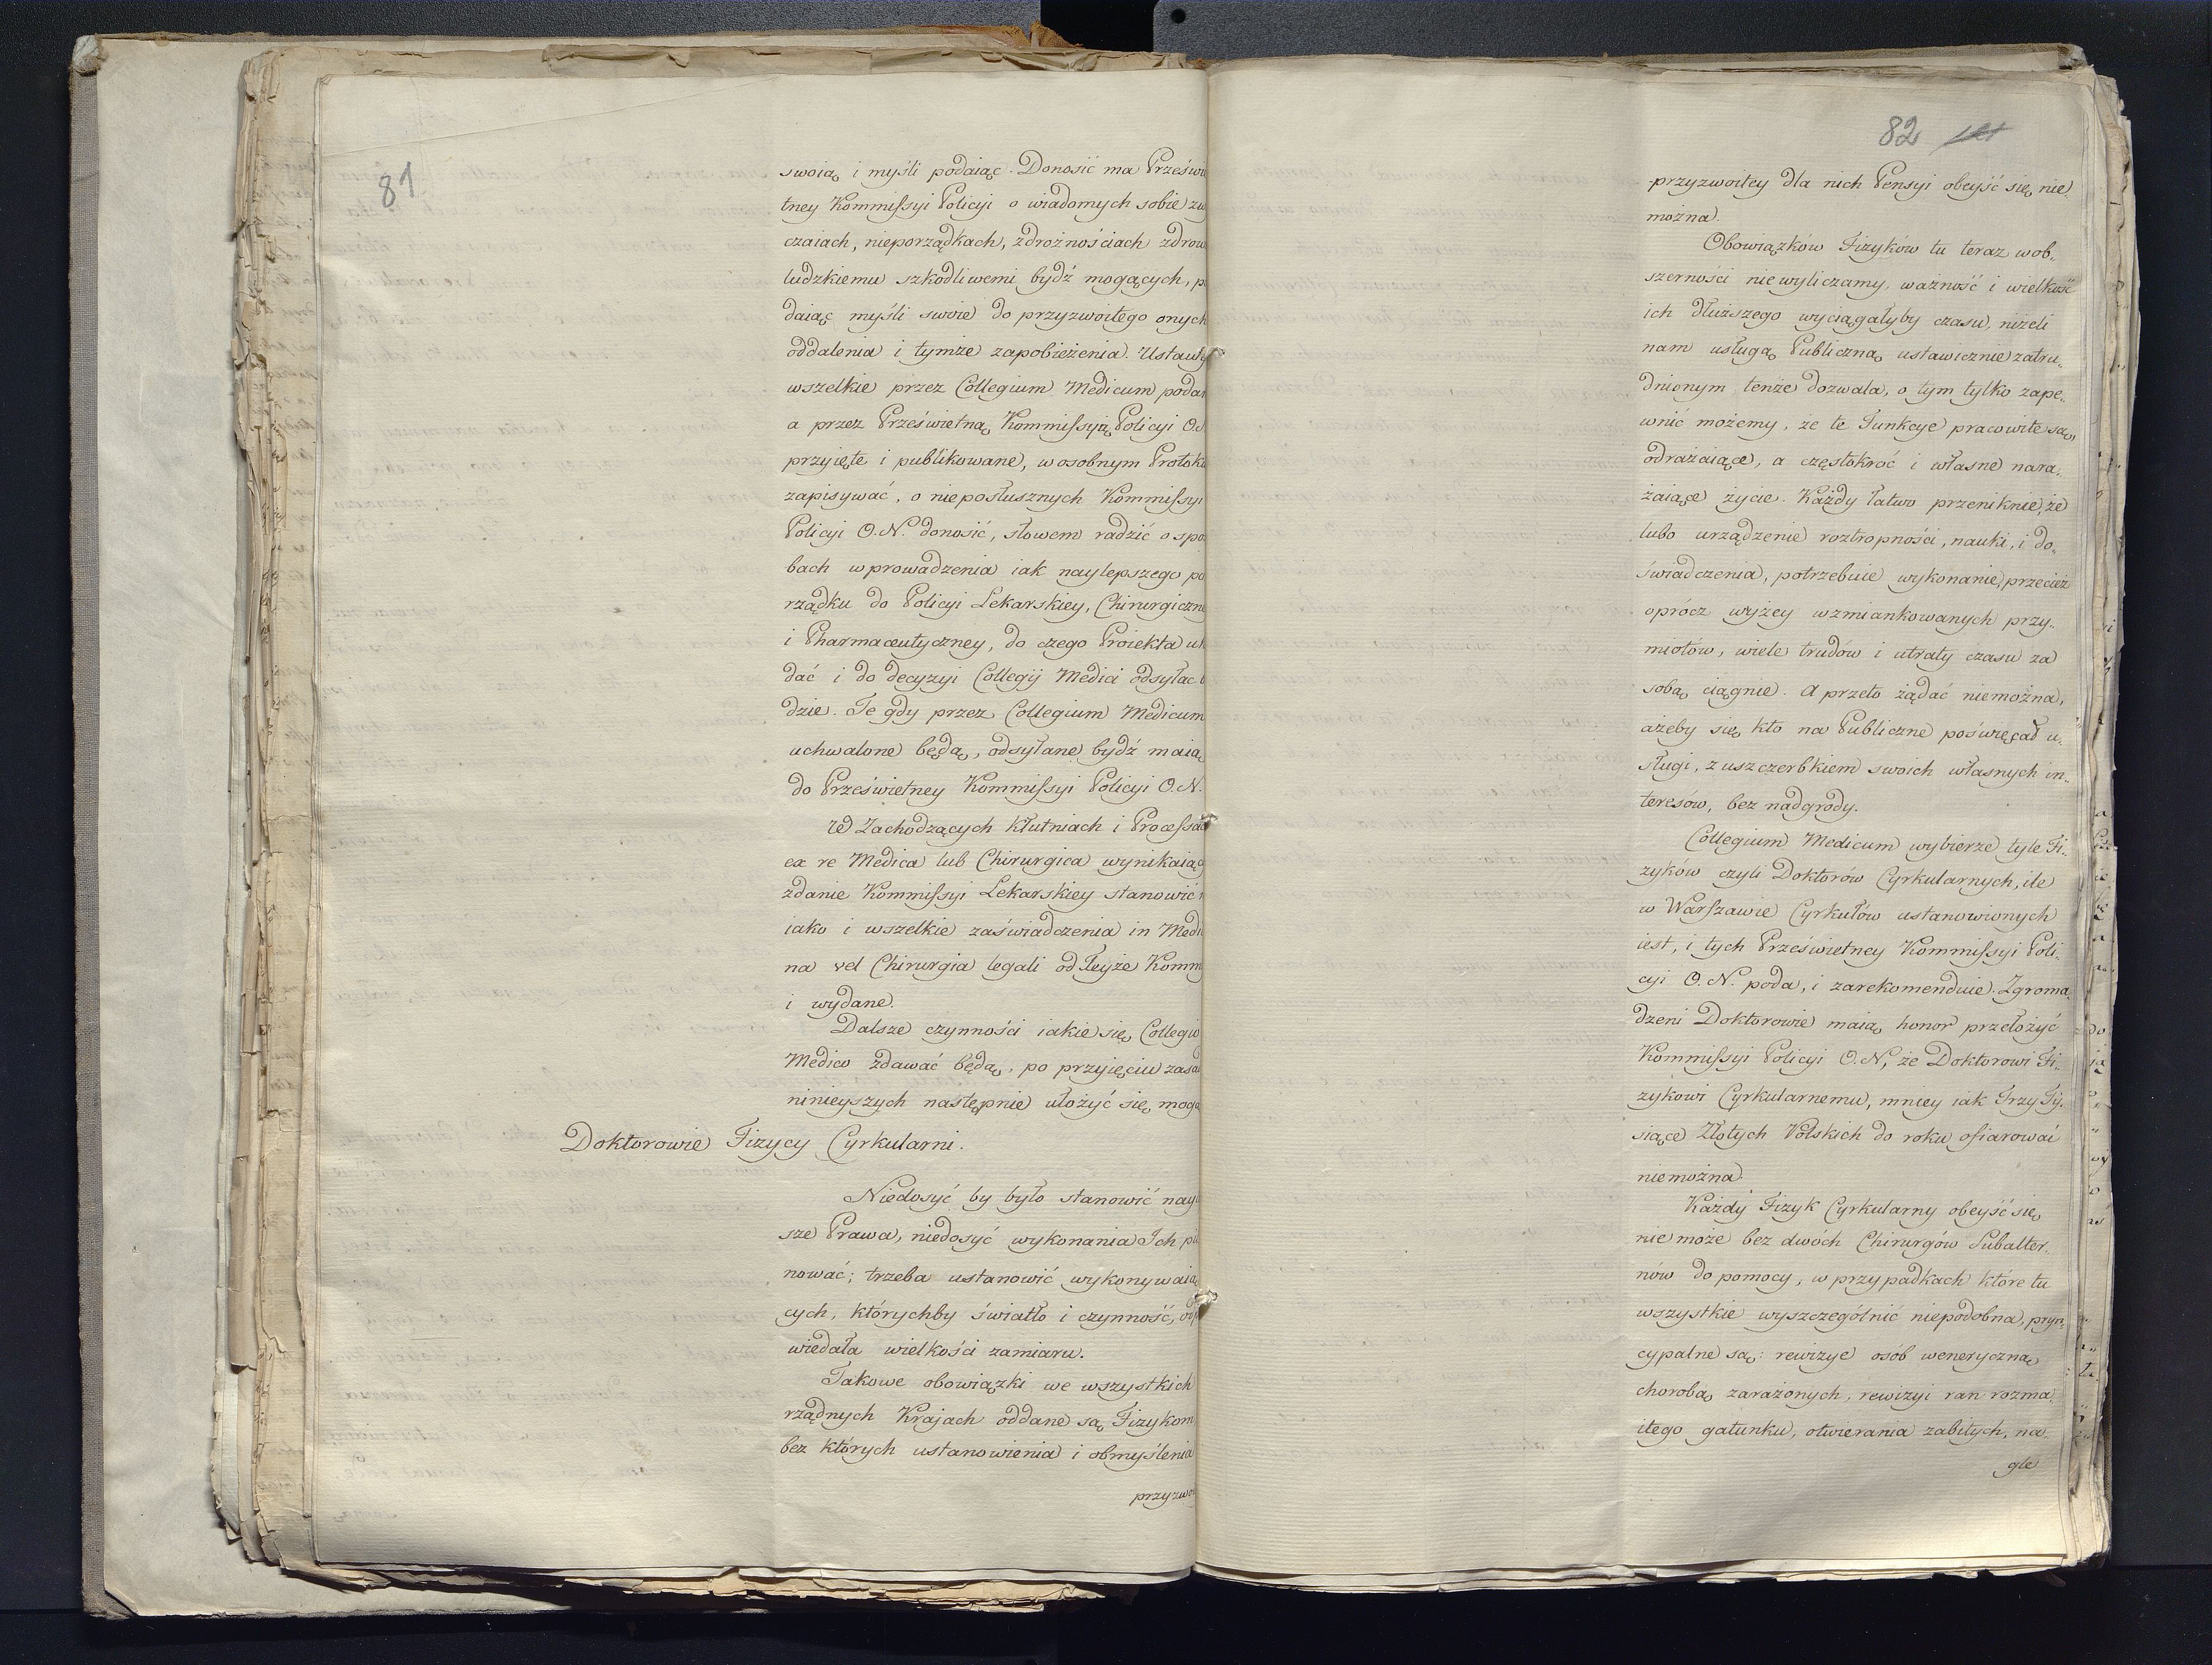 81
swoią i myśli podaiąc. Donosić ma Prześwie
tney Kommissyi Policyi o wiadomych sobie zw
czaiach, nieporządkach, zdrożnościach zdrow
ludzkiemu szkodliwemi bydź mogących, p
daiąc myśli swoie do przyzwoitego onych
oddalenia i tymże zapobieżenia. Ustawy
wszelkie przez Collegium Medicum podan
a przez Prześwietną Kommissyią Policyi O.N
przyięte i publikowane, w osobnym Protoku
zapisywać, o nieposłusznych Kommissyi
Policyi O.N. donosić, słowem radzić o spo
bach wprowadzenia iak naylepszego po
rządku do Policyi Lekarskiey, Chirurgiczne
i Pharmaceutyczney, do czego Proiekta uk
dać i do decyzyi Collegij Medici odsyłac b
dzie. Te gdy przez Collegium Medicum
uchwalone będą, odsyłane bydź maią
do Prześwietney Kommissyi Policyi O.N.
We Zachodzących kłutniach i Processac
ex re Medica lub Chirurgica wynikaiąc
zdanie Kommissyi Lekarskiey stanowić
iako i wszelkie zaświadczenia in Medi
na vel Chirurgia legali od teyże Komm
i wydane.
Dalsze czynności iakie się Collegio
Medico zdawać będą, po przyięciu zasad
ninieyszych następnie ułożyć się mogą
Doktorowie Fizycy Cyrkularni.
Niedosyć by było stanowić nay
sze Prawa, niedosyć wykonania Ich pil
nować; trzeba ustanowić wykonywaią
cych, którychby światło i czynność, odp
wiedała wielkości zamiaru.
Takowe obowiązki we wszystkich
rządnych Krajach oddane są Fizykom
bez których ustanowienia i obmyślenia
przyzwoi
82
przyzwoitey dla nich Pensyi obeyść się nie
można.
Obowiązków Fizyków tu teraz w ob„
szerności niewyliczamy, ważność i wielkość
ich dłuższego wyciągałyby czasu, niżeli
nam usługą Publiczną ustawicznie zatru„
dnionym tenże dozwala, o tym tylko zape„
wnić możemy, że te Funkcye pracowite są,
odrażaiące, a częstokroć i własne nara„
żaiące życie. Każdy łatwo przeniknie, że
lubo urządzenie roztropności, nauki, i do„
świadczenia, potrzebuie wykonanie, przecież
oprócz wyżey wzmiankowanych przy„
miotów, wiele trudów i utraty czasu za
sobą ciągnie. A przeto żądać niemożna,
ażeby się kto na Publiczne poświęcał u„
sługi, z uszczerbkiem swoich własnych in„
teresów, bez nadgrody.
Collegium Medicum wybierze tyle Fi„
zyków czyli Doktorów Cyrkularnych, ile
w Warszawie Cyrkułów ustanowionych
iest, i tych Prześwietney Kommissyi Poli„
cyi O.N. poda, i zarekomenduie. Zgroma„
dzeni Doktorowie maią honor przełożyć
Kommissyi Policyi O.N, że Doktorowi Fi„
zykowi Cyrkularnemu, mniey iak Trzy Ty„
siące Złotych Polskich do roku ofiarować
niemożna.
Każdy Fizyk Cyrkularny obeyść się
nie może bez dwoch Chirurgów Subalter„
nów do pomocy, w przypadkach które tu
wszystkie wyszczególnić niepodobna, pryn„
cypalne są: rewizye osób weneryczną
chorobą zarażonych, rewizyi ran rozma„
itego gatunku, otwierania zabitych, na„
gle